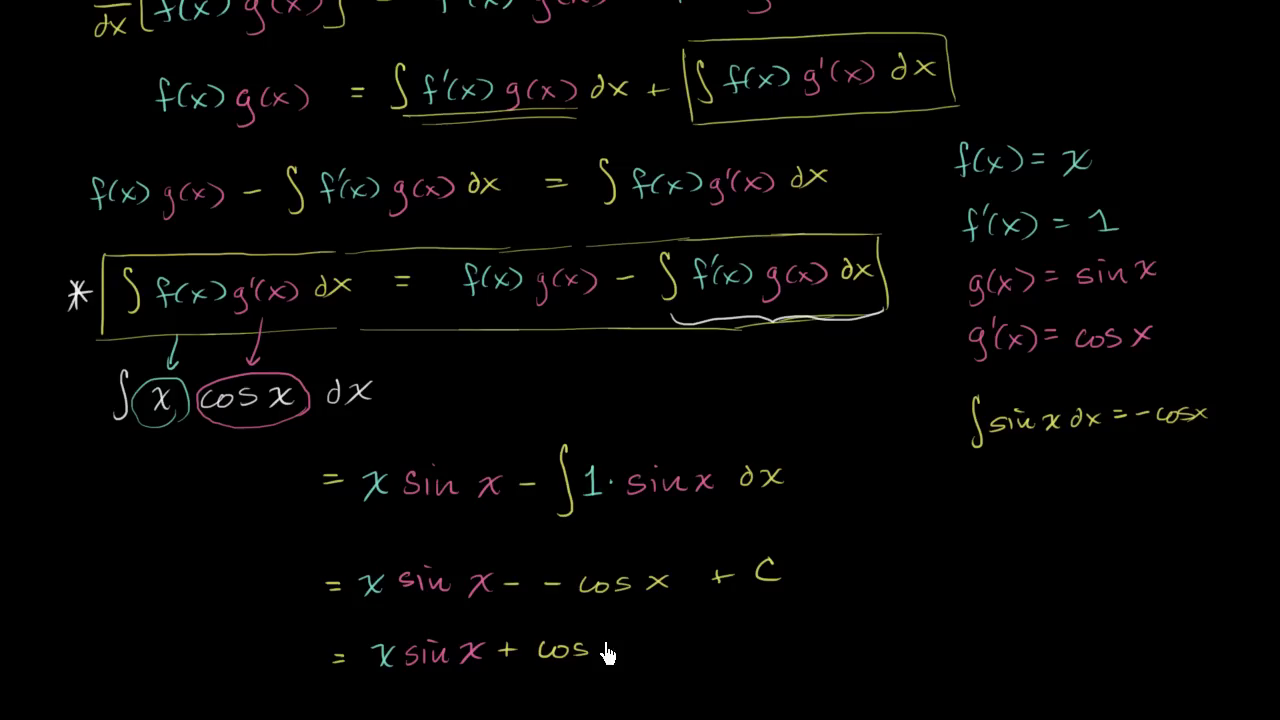 d/dx [f(x) g(x)]
f(x) g(x) = ∫ f'(x) g(x) dx + ∫ f(x) g'(x) dx
f(x) g(x) - ∫ f'(x) g(x) dx = ∫ f(x) g'(x) dx
* ∫ f(x) g'(x) dx = f(x) g(x) - ∫ f'(x) g(x) dx
∫ x cos x dx
= x sin x - ∫ 1 · sin x dx
= x sin x - - cos x + C
= x sin x + cos
f(x) = x
f'(x) = 1
g(x) = sin x
g'(x) = cos x
∫ sin x dx = - cos x